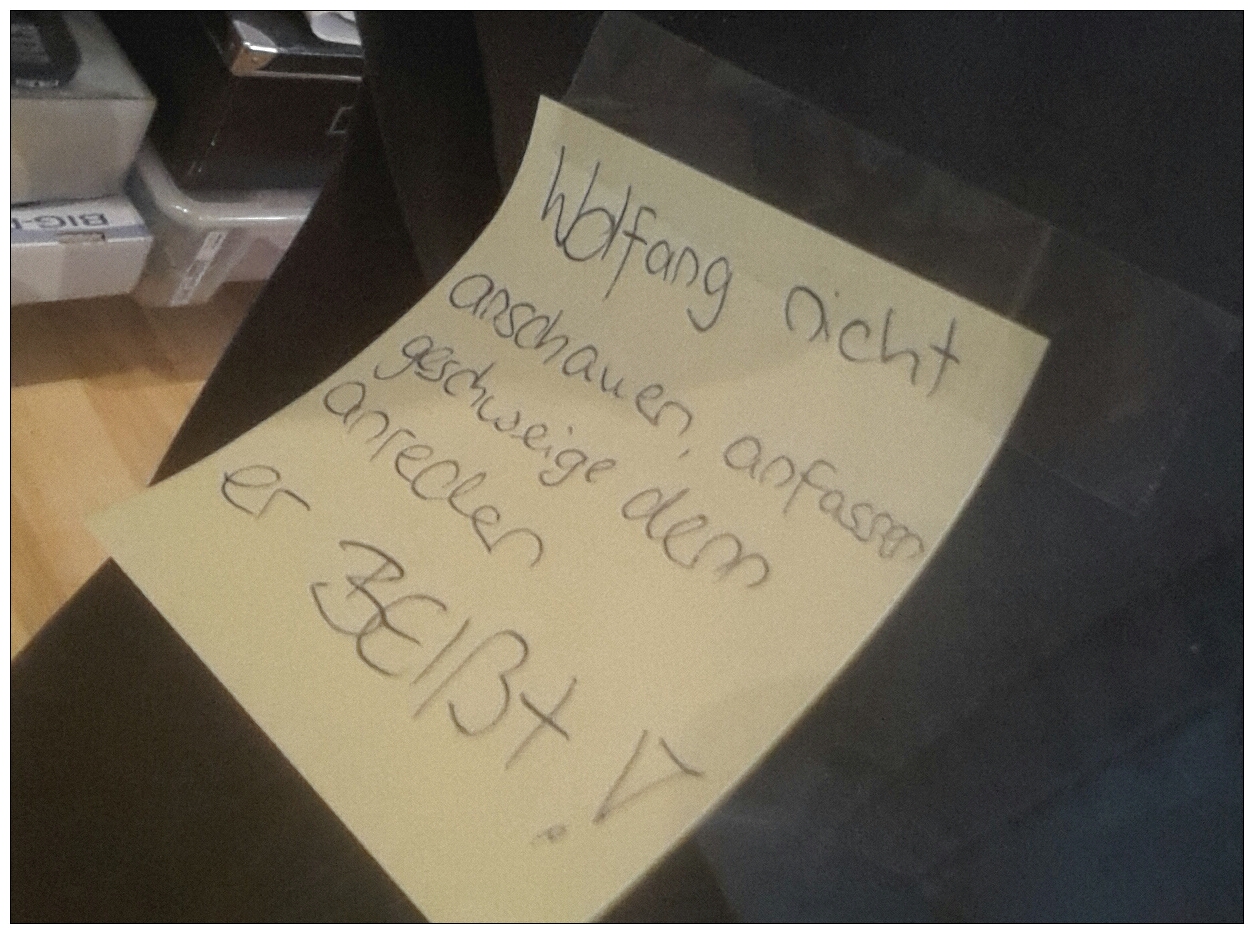 BIG-
Wolfang nicht
anschauen, anfassen
geschweige denn
anreden
er BEIßt!